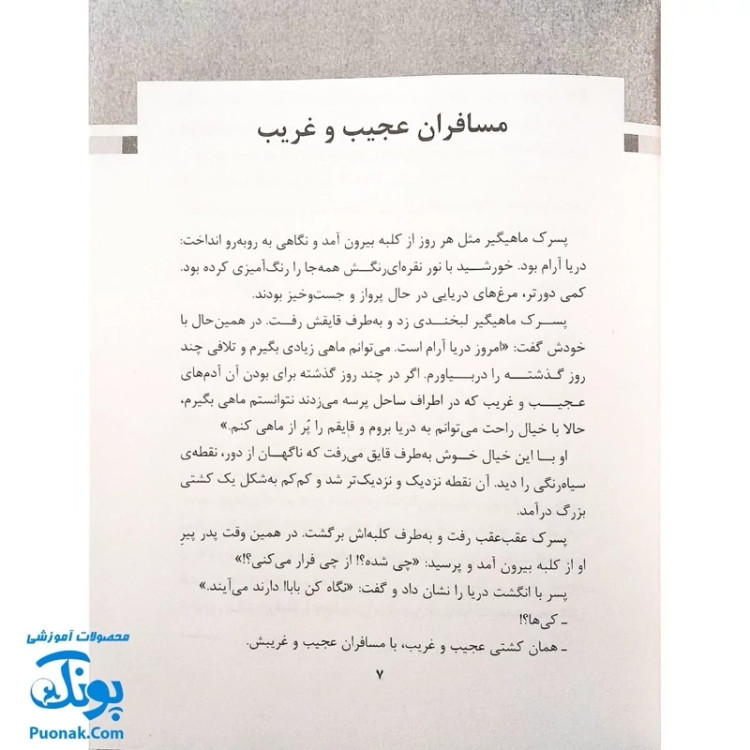 مسافران عجیب و غریب
پسرک ماهیگیر مثل هر روز از کلبه بیرون آمد و نگاهی به روبه‌رو انداخت:
دریا آرام بود. خورشید با نور نقره‌ای‌رنگش همه‌جا را رنگ‌آمیزی کرده بود.
کمی دورتر، مرغ‌های دریایی در حال پرواز و جست‌وخیز بودند.
پسرک ماهیگیر لبخندی زد و به‌طرف قایقش رفت. در همین‌حال با
خودش گفت: «امروز دریا آرام است. می‌توانم ماهی زیادی بگیرم و تلافی چند
روز گذشته را دربیاورم. اگر در چند روز گذشته برای بودن آن آدم‌های
عجیب و غریب که در اطراف ساحل پرسه می‌زدند نتوانستم ماهی بگیرم،
حالا با خیال راحت می‌توانم به دریا بروم و قایقم را پُر از ماهی کنم.»
او با این خیال خوش به‌طرف قایق می‌رفت که ناگهان از دور، نقطه‌ی
سیاه‌رنگی را دید. آن نقطه نزدیک و نزدیک‌تر شد و کم‌کم به‌شکل یک کشتی
بزرگ درآمد.
پسرک عقب‌عقب رفت و به‌طرف کلبه‌اش برگشت. در همین وقت پدر پیرِ
او از کلبه بیرون آمد و پرسید: «چی شده؟! از چی فرار می‌کنی؟!»
پسر با انگشت دریا را نشان داد و گفت: «نگاه کن بابا! دارند می‌آیند.»
ـ کی‌ها؟!
ـ همان کشتی عجیب و غریب، با مسافران عجیب و غریبش.
۷
محصولات آموزشی
پونک
Puonak.Com